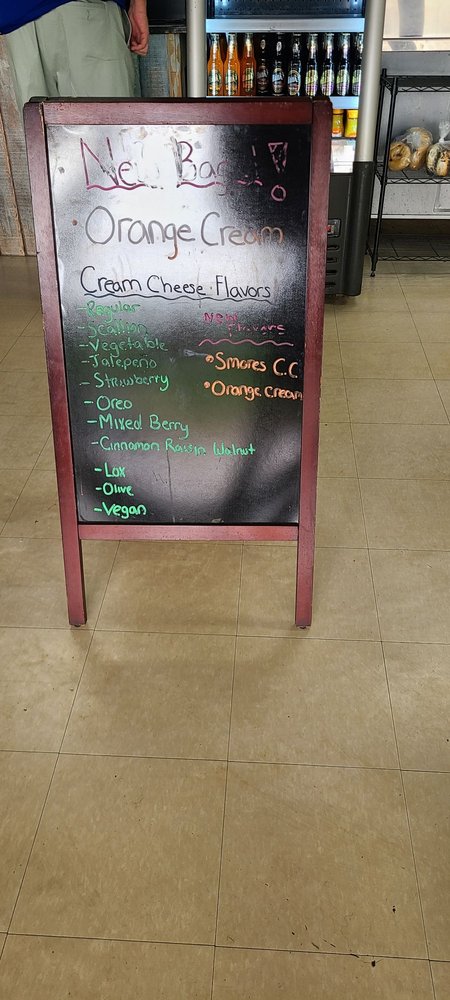 New Bagel!
• Orange Cream
Cream Cheese Flavors
- Regular
- Scallion
- Vegetable
- Jalepeño
- Strawberry
- Oreo
- Mixed Berry
- Cinnamon Raisin Walnut
- Lox
- Olive
- Vegan
New Flavors
• Smores C.C
• Orange Cream